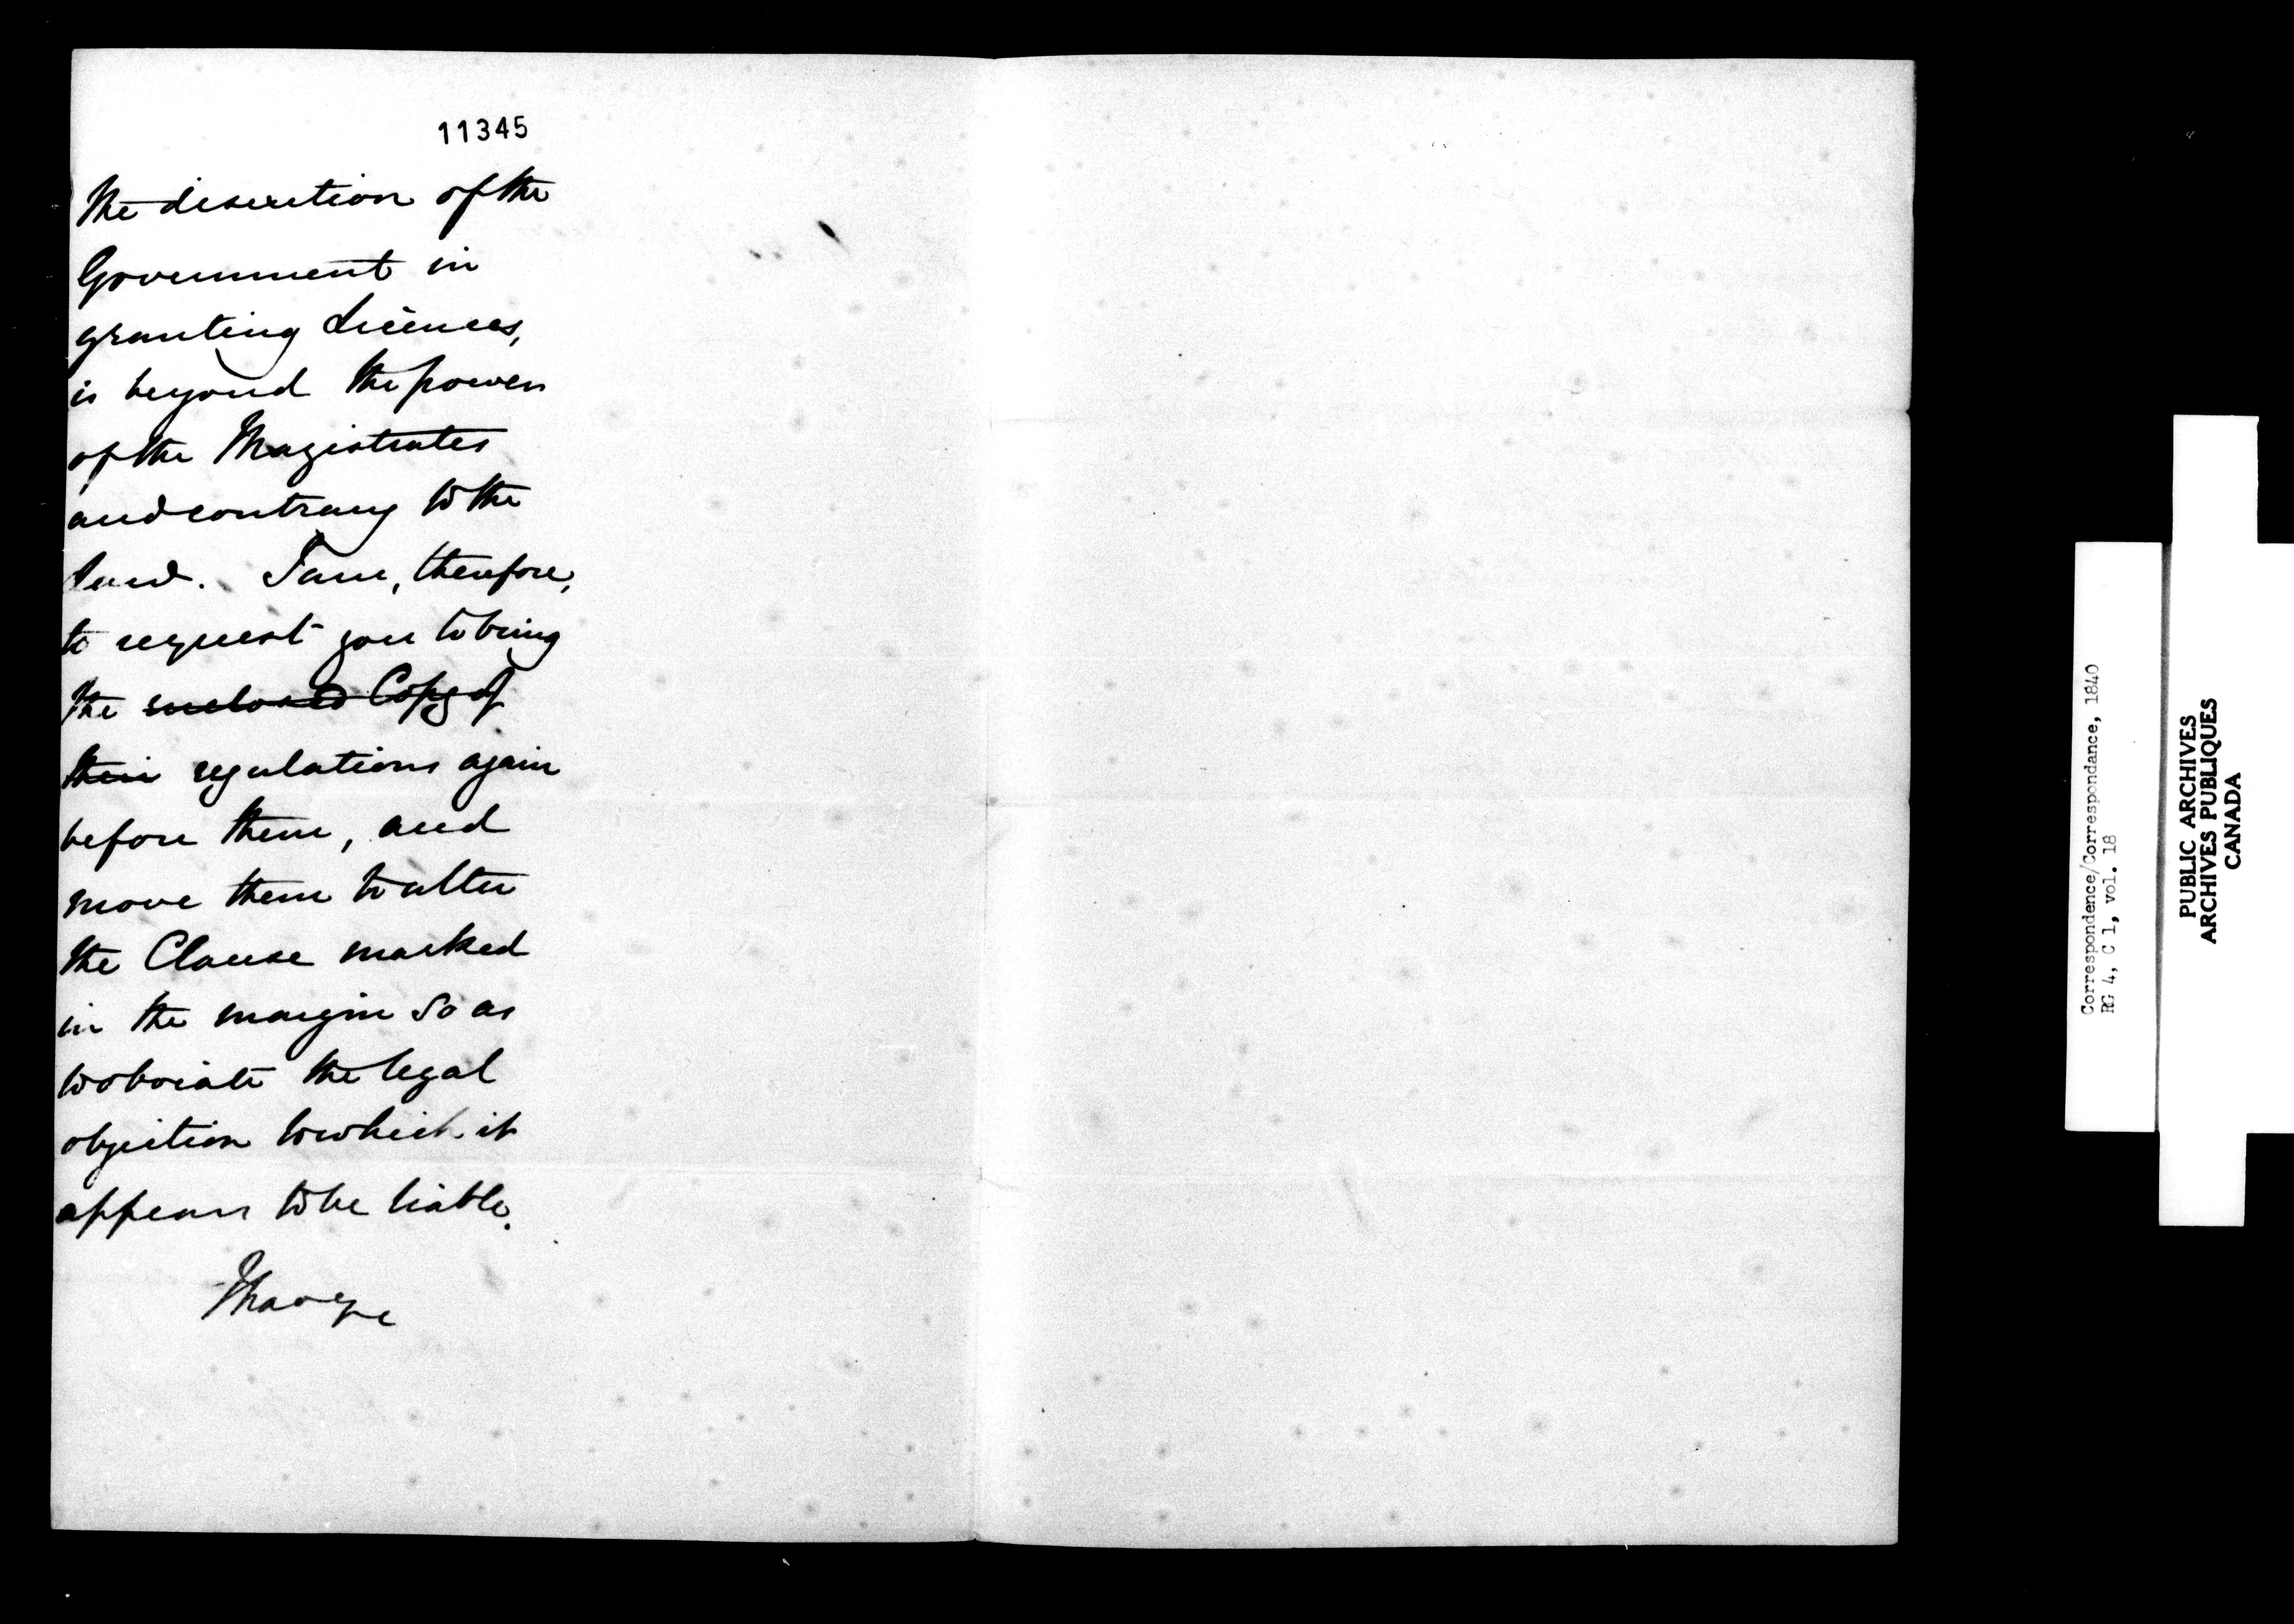 11345
the discretion of the
Government in
granting Licences,
is beyond the power
of the Magistrates
and contrary to the
law. I am, therefore,
to request you to bring
the enclosed Copy of
their regulations again
before them, and
move them to alter
the Clause marked
in the margin so as
to obviate the legal
objection to which it
appears to be liable.
Correspondence/Correspondance, 1840
RG 4, C 1, vol. 18
PUBLIC ARCHIVES
ARCHIVES PUBLIQUES
CANADA